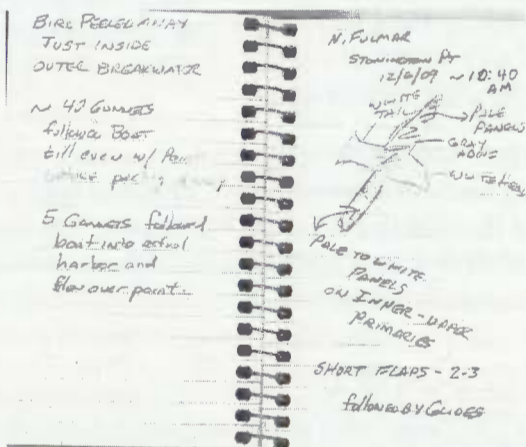 BIRD PEELED AWAY
JUST INSIDE
OUTER BREAKWATER
~ 40 GANNETS
followed Boat
till even w/
before
5 Gannets followed
boat into actual
harbor and
flew over point
N. FULMAR
STONINGTON PT
12/6/09 ~10:40
AM
WHITE
TAIL
PALE
PANELS
GRAY
ABOVE
WHITE HEAD
PALE TO WHITE
PANELS
ON INNER-UPPER
PRIMARIES
SHORT FLAPS - 2-3
followed BY GLIDES